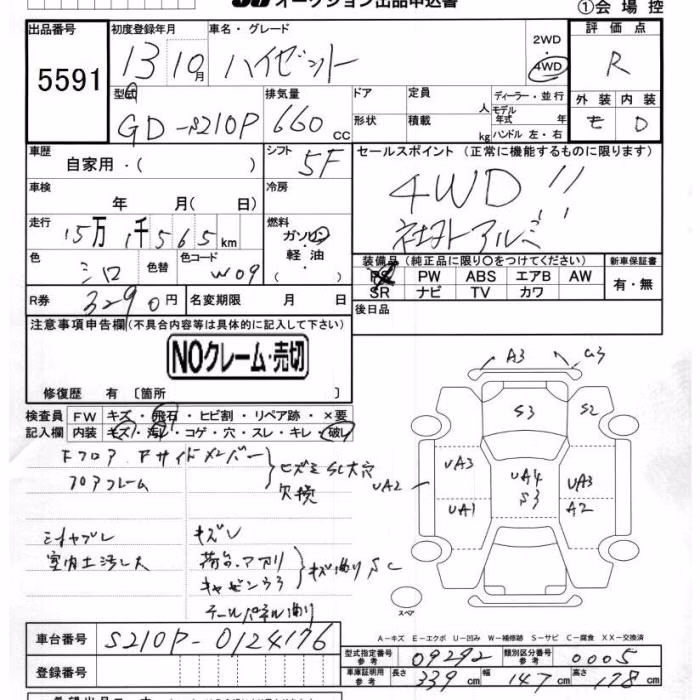 オークション出品申込書
①会場控
出品番号 初度登録年月 車名・グレード 2WD ・ 4WD 評価点
5591 13 10月 ハイゼット R
型式 排気量 ドア 定員 人 ディーラー・並行 外装 内装
GD-S210P 660 cc 形状 積載 kg モデル年式 年 ハンドル 左・右 モ D
車歴 自家用・( ) シフト 5F セールスポイント (正常に機能するものに限ります)
4WD!!
車検 年 月( 日) 冷房
走行 15万 1千565km 燃料 ガソリン 軽油 ・ ( )
社外アルミ!!
色 シロ 色替 色コード W09
装備品 (純正品に限り○をつけてください) 新車保証書
PS PW ABS エアB AW 有・無
SR ナビ TV カワ
R券 3290円 名変期限 月 日 後日品
注意事項申告欄(不具合内容等は具体的に記入して下さい)
NOクレーム・売切
修復歴 有 〔箇所 〕
検査員 FW キズ・飛石・ヒビ割・リペア跡・×要
記入欄 内装 キズ・汚れ・コゲ・穴・スレ・キレ・破レ
Fフロア Fサイドメンバー
フロアフレーム
ヒズミ SC大穴
欠損
キズ
室内土汚レ大
荷台アオリ
キャビンウラ
キズ曲り SC
テールパネル曲り
A3 G3
S3 S2
UA3 UA4 UA3
UA2 S3 A2
UA1
スペア
A-キズ E-エクボ U-凹み W-補修跡 S-サビ C-腐食 XX-交換済
車台番号 S210P-0124176
型式指定番号 参考 09292 類別区分番号 参考 0005
登録番号
車庫証明用 参考 長さ 339cm 幅 147cm 高さ 178cm